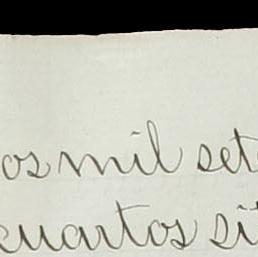 os mil set
cuartos si